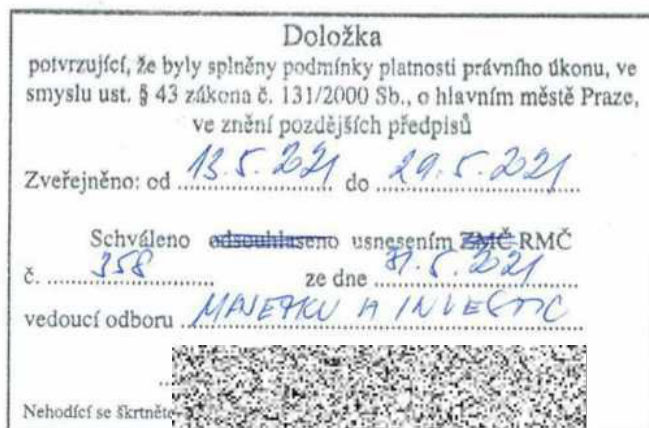 Doložka
potvrzující, že byly splněny podmínky platnosti právního úkonu, ve
smyslu ust. § 43 zákona č. 131/2000 Sb., o hlavním městě Praze,
ve znění pozdějších předpisů
Zveřejněno: od 13.5.2021 do 29.5.2021
Schváleno odsouhlaseno usnesením ZMČ RMČ
č. 358 ze dne 31.5.2021
vedoucí odboru MAJETKU A INVESTIC
Nehodící se škrtněte